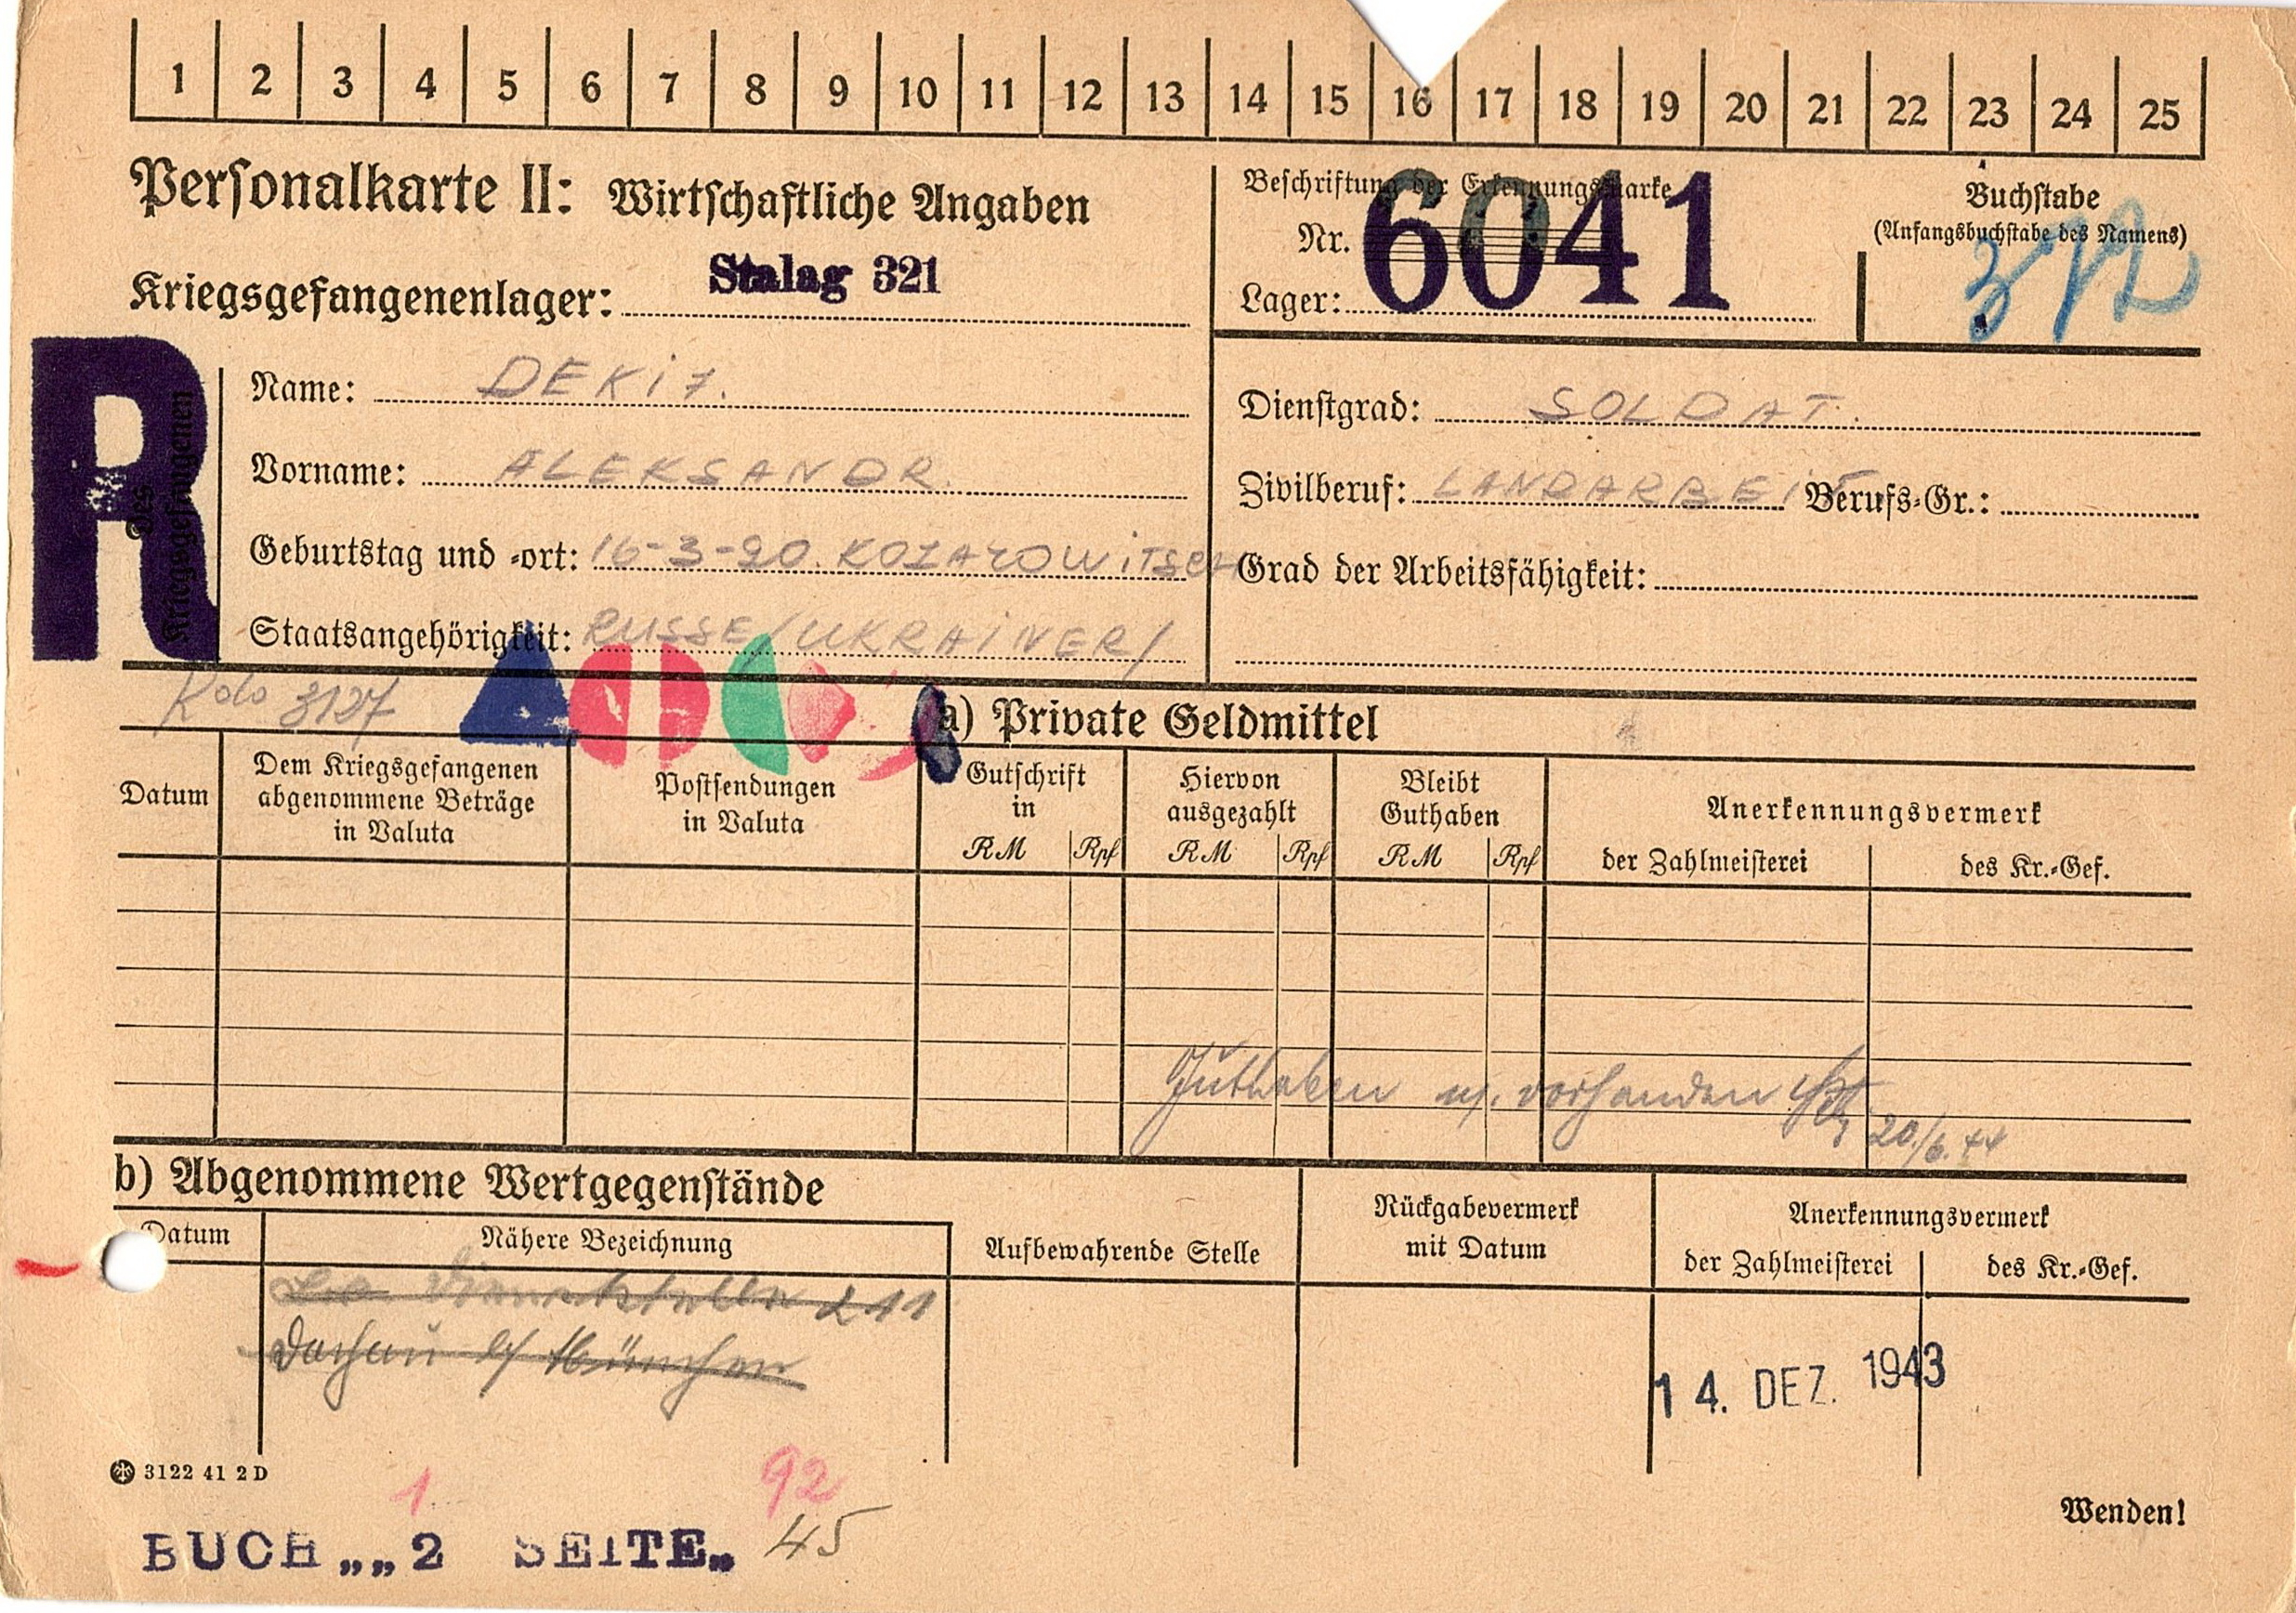 1 2 3 4 5 6 7 8 9 10 11 12 13 14 15 16 17 18 19 20 21 22 23 24 25
Personalkarte II: Wirtschaftliche Angaben
Kriegsgefangenenlager: Stalag 321
Beschriftung der Erkennungsmarke
Nr. 6041
Lager:
Buchstabe
(Anfangsbuchstabe des Namens)
R
Des Kriegsgefangenen
Name: DEKIJ.
Vorname: ALEKSANDR.
Geburtstag und -ort: 16-3-20. KOZAROWITSCH
Staatsangehörigkeit: RUSSE/UKRAINER/
Dienstgrad: SOLDAT.
Zivilberuf: LANDARBEIT Berufs-Gr.:
Grad der Arbeitsfähigkeit:
3127
a) Private Geldmittel
Datum
Dem Kriegsgefangenen
abgenommene Beträge
in Valuta
Postsendungen
in Valuta
Gutschrift
in
RM Rpf
Hiervon
ausgezahlt
RM Rpf
Bleibt
Guthaben
RM Rpf
Anerkennungsvermerk
der Zahlmeisterei
des Kr.-Gef.
Guthaben n. vorhanden
20/6.44
b) Abgenommene Wertgegenstände
Datum
Nähere Bezeichnung
Aufbewahrende Stelle
Rückgabevermerk
mit Datum
Anerkennungsvermerk
der Zahlmeisterei
des Kr.-Gef.
Dienststelle 211
Dachau b/ München
14. DEZ. 1943
3122 41 2 D
1
92
BUCH „„ 2 SEITE„ 45
Wenden!